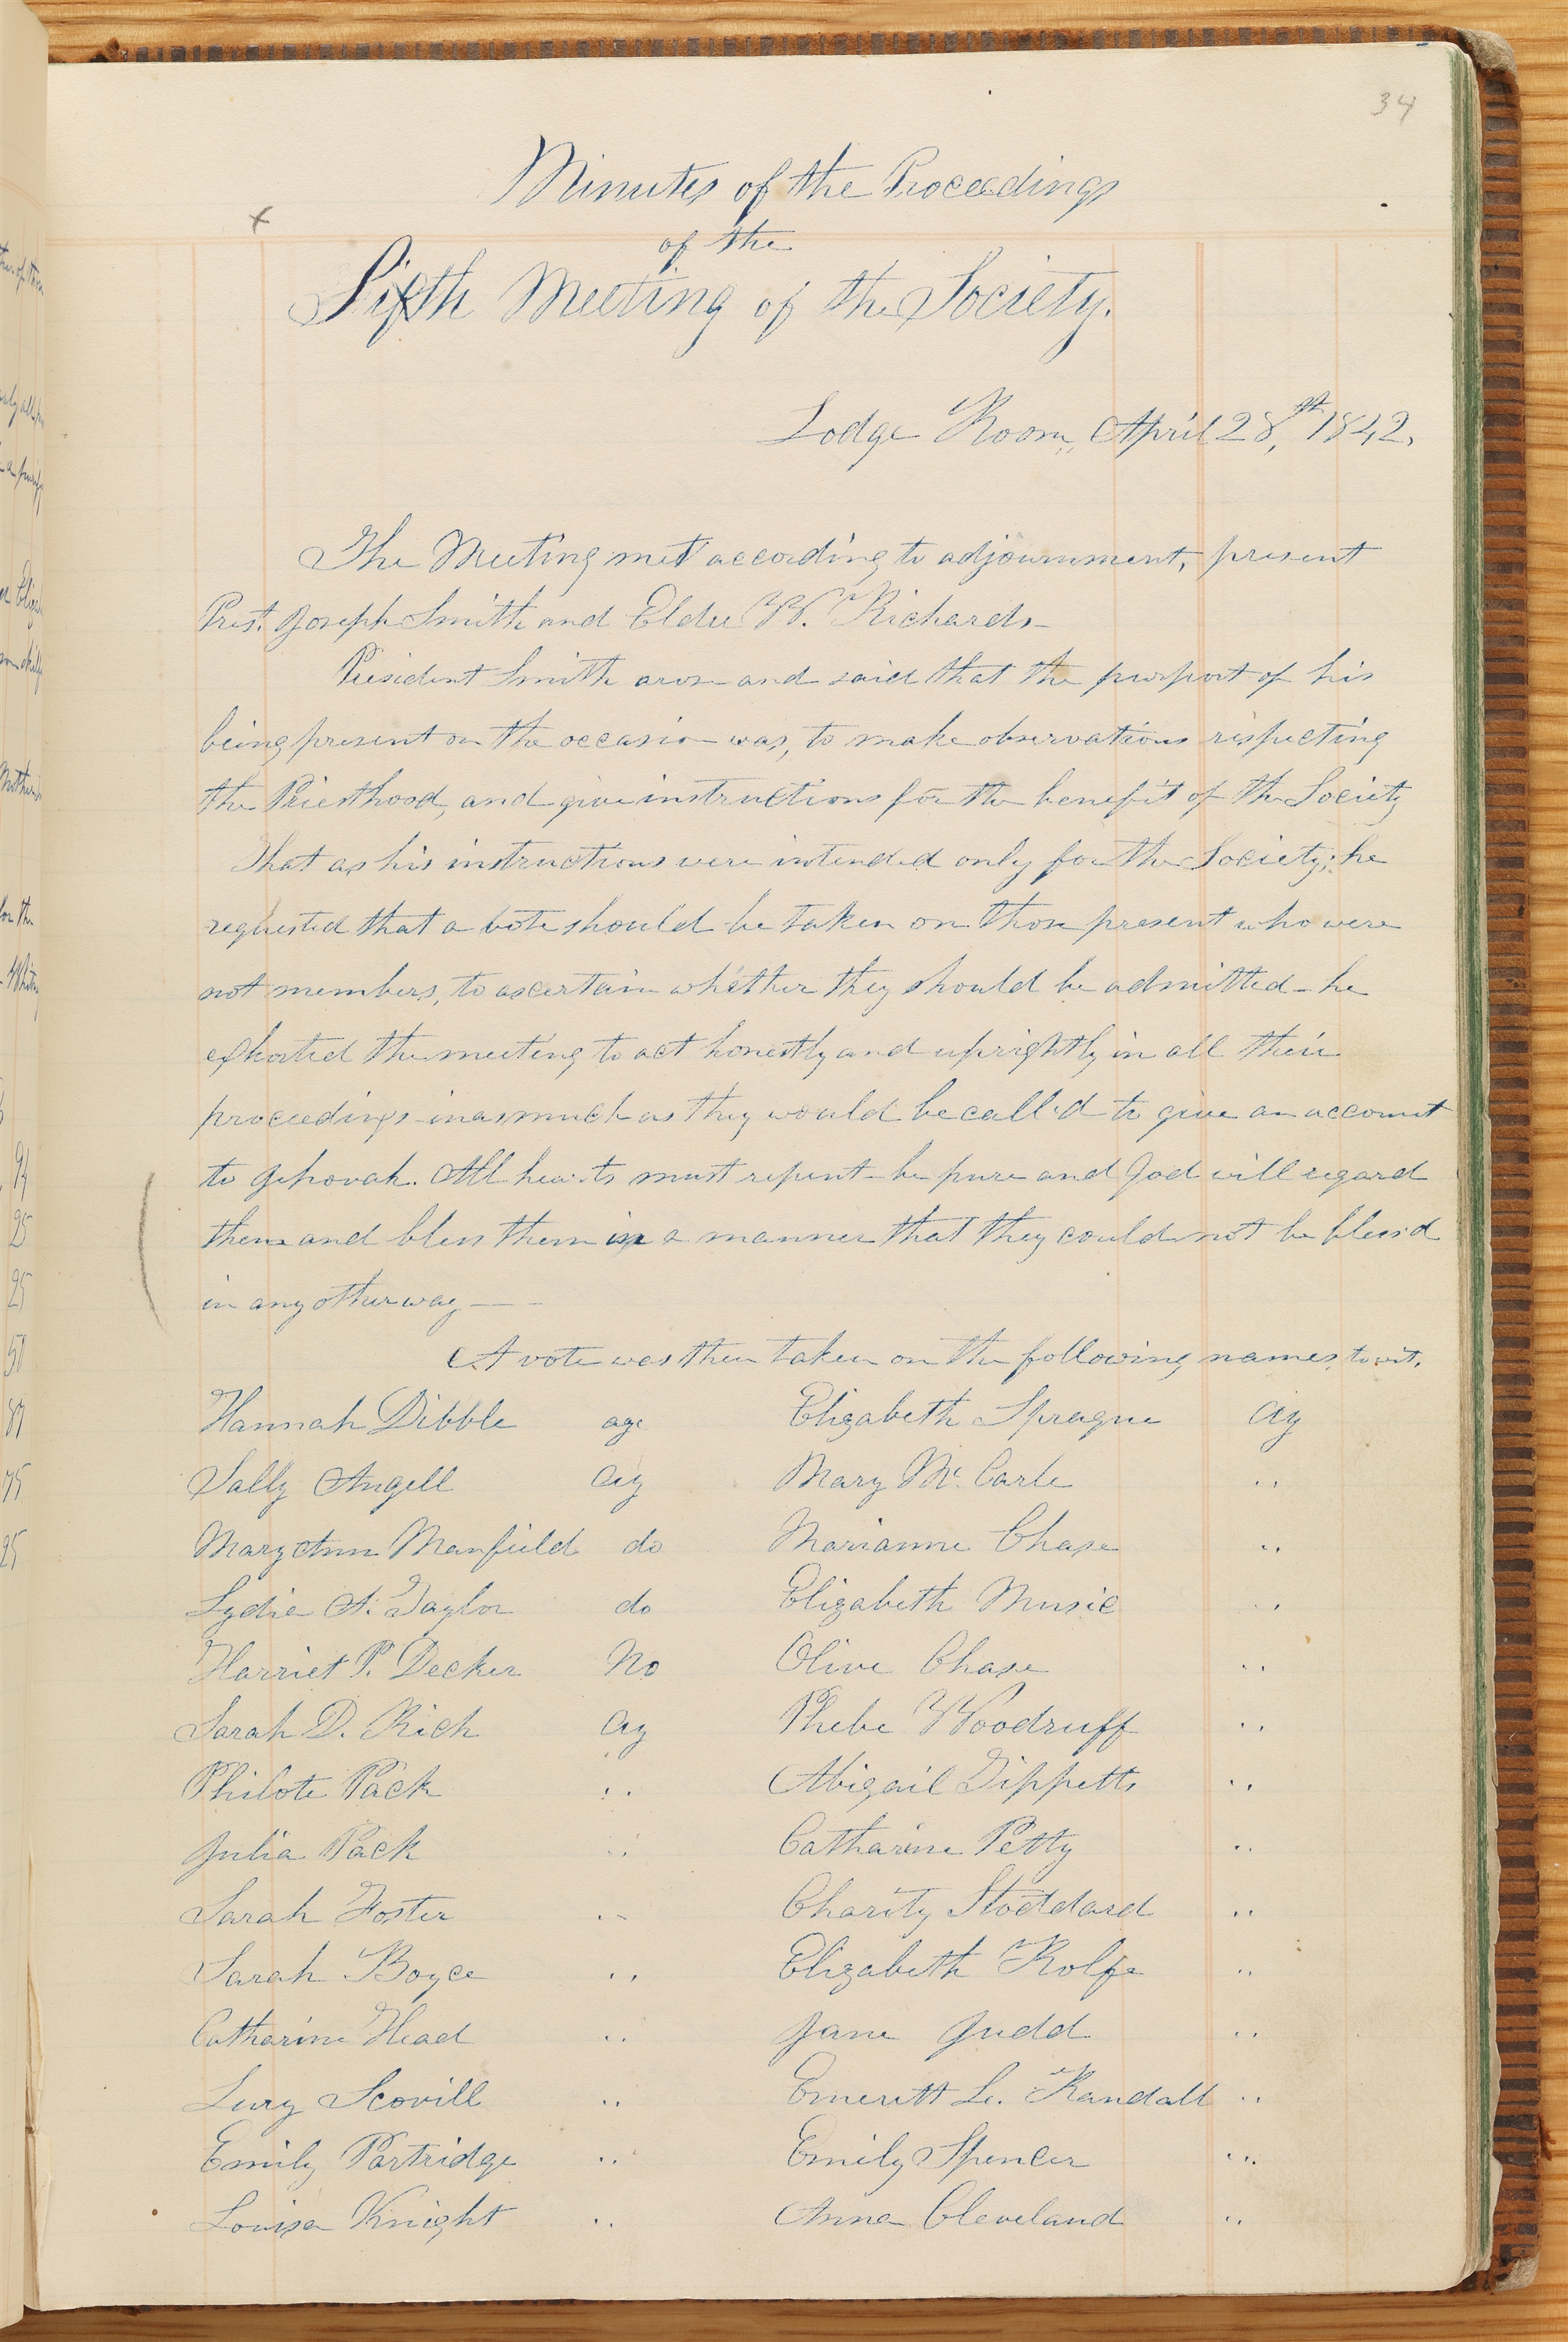 34
Minutes of the Proceedings
of the
Sixth Meeting of the Society.
Lodge Room, April 28th, 1842.
The Meeting met according to adjournment, present
Prest. Joseph Smith and Elder W. Richards—
President Smith arose and said that the purport of his
being present on the occasion was, to make observations respecting
the Priesthood, and give instructions for the benefit of the Society
That as his instructions were intended only for the Society; he
requested that a vote should be taken on those present who were
not members, to ascertain whether they should be admitted - he
exhorted the meeting to act honestly and uprightly in all their
proceedings inasmuch as they would be call'd to give an account
to Jehovah. All hearts must repent - be pure and God will regard
them and bless them in a manner that they could not be bless'd
in any other way —
A vote was then taken on the following names, to wit,
Hannah Dibble aye Elizabeth Sprague Ay
Sally Angell Ay Mary McCarle "
Mary Ann Manfield do Marianne Chase "
Lydia A. Taylor do Elizabeth Music "
Harriet P. Decker No Olive Chase "
Sarah D. Rich Ay Phebe Woodruff "
Philote Pack " Abigail Tippetts "
Julia Pack " Catharine Petty "
Sarah Foster " Charity Stoddard "
Sarah Boyce " Elizabeth Rolfe "
Catharine Head " Jane Judd "
Lury Scovill " Emeritt L. Randall "
Emily Partridge " Emily Spencer "
Louisa Knight " Anna Cleveland "